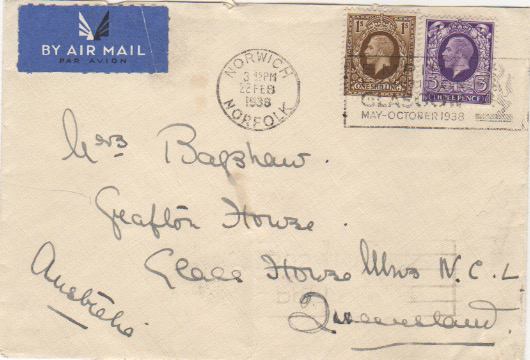 BY AIR MAIL
PAR AVION
NORWICH
22 FEB
1938
NORFOLK
1s 1s
ONE SHILLING
3D
THREE PENCE
GLASGOW
MAY-OCTOBER 1938
Mrs Bagshaw.
Grafton House.
Glass House Mns N.C.L
Queensland.
Australia